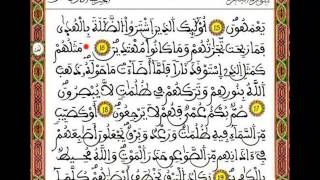 يَعْمَهُونَ 15 أُوْلَٰٓئِكَ ٱلَّذِينَ ٱشْتَرَوُاْ ٱلضَّلَٰلَةَ بِٱلْهُدَىٰ
فَمَا رَبِحَت تِّجَٰرَتُهُمْ وَمَا كَانُواْ مُهْتَدِينَ 16 مَثَلُهُمْ
كَمَثَلِ ٱلَّذِى ٱسْتَوْقَدَ نَارًا فَلَمَّآ أَضَآءَتْ مَا حَوْلَهُۥ ذَهَبَ
ٱللَّهُ بِنُورِهِمْ وَتَرَكَهُمْ فِى ظُلُمَٰتٍ لَّا يُبْصِرُونَ
17 صُمٌّۢ بُكْمٌ عُمْىٌ فَهُمْ لَا يَرْجِعُونَ 18 أَوْ كَصَيِّبٍ
مِّنَ ٱلسَّمَآءِ فِيهِ ظُلُمَٰتٌ وَرَعْدٌ وَبَرْقٌ يَجْعَلُونَ أَصَٰبِعَهُمْ
فِىٓ ءَاذَانِهِم مِّنَ ٱلصَّوَٰعِقِ حَذَرَ ٱلْمَوْتِ وَٱللَّهُ مُحِيطٌۢ
بِٱلْكَٰفِرِينَ 19 يَكَادُ ٱلْبَرْقُ يَخْطَفُ أَبْصَٰرَهُمْ كُلَّمَآ